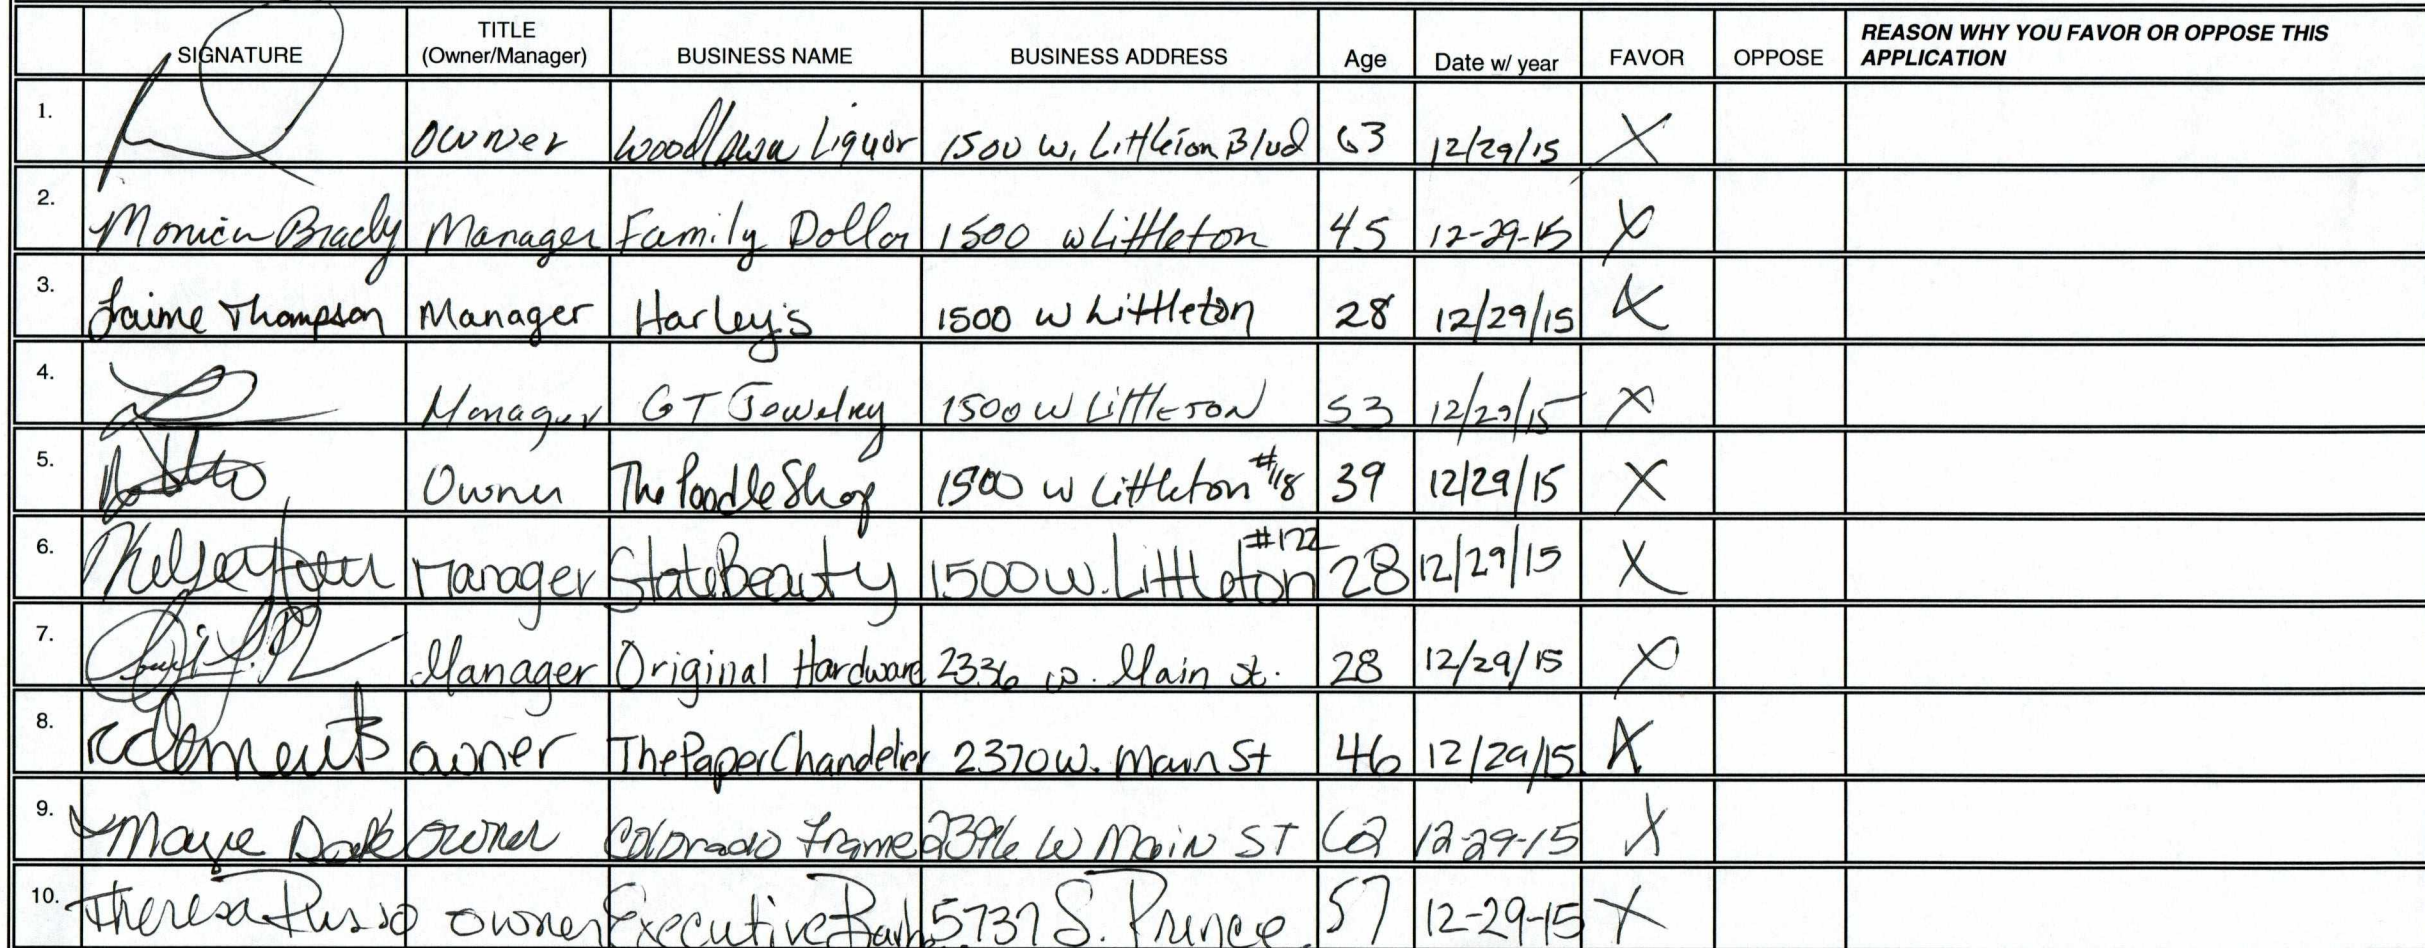 SIGNATURE TITLE (Owner/Manager) BUSINESS NAME BUSINESS ADDRESS Age Date w/ year FAVOR OPPOSE REASON WHY YOU FAVOR OR OPPOSE THIS APPLICATION
1. owner Woodlawn Liquor 1500 W. Littleton Blvd 63 12/29/15 X
2. Monica Brady Manager Family Dollar 1500 W Littleton 45 12-29-15 X
3. Jaime Thompson Manager Harley's 1500 W Littleton 28 12/29/15 X
4. Manager GT Jewelry 1500 W Littleton 53 12/29/15 X
5. Owner The Poodle Shop 1500 W Littleton #118 39 12/29/15 X
6. Manager State Beauty 1500 W. Littleton #122 28 12/29/15 X
7. Manager Original Hardware 2336 W. Main St. 28 12/29/15 X
8. Clements owner The Paper Chandelier 2370 W. Main St 46 12/29/15 X
9. owner Colorado Frame 2396 W Main ST 62 12-29-15 X
10. Theresa Russo owner Executive 5737 S. Prince 57 12-29-15 X